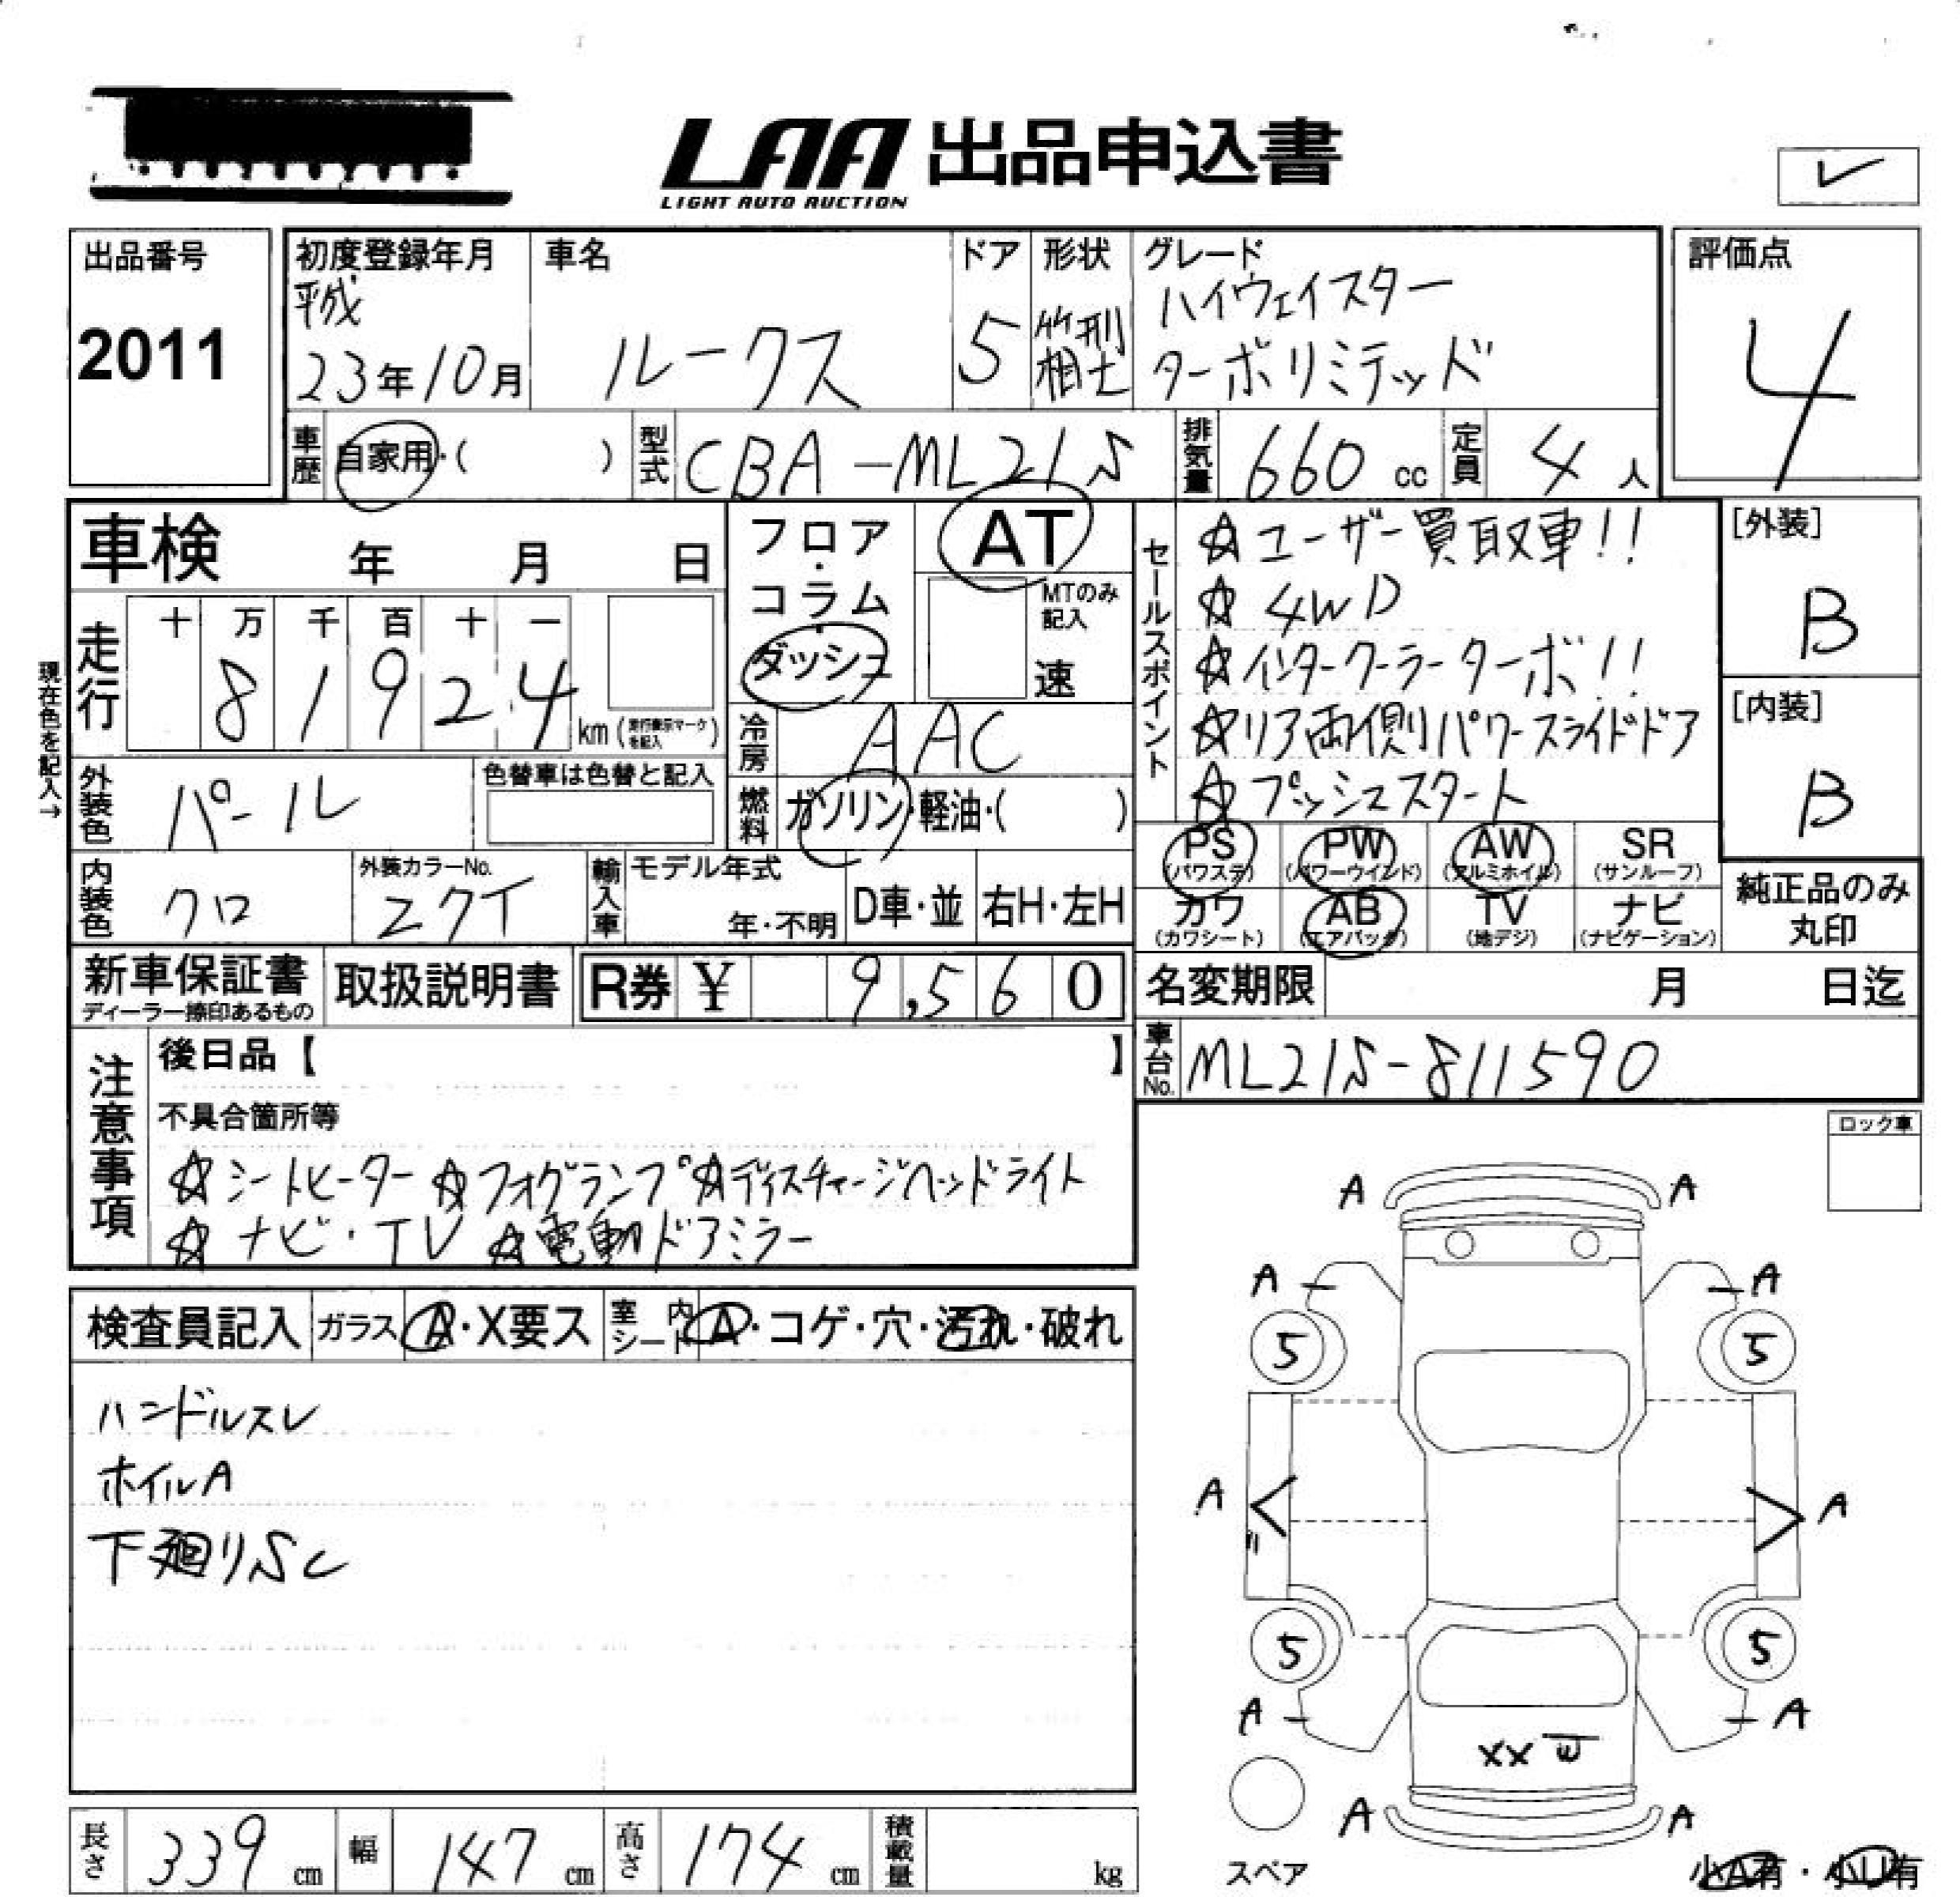 LAA 出品申込書
LIGHT AUTO AUCTION
出品番号
2011
初度登録年月
平成
23年10月
車名
ルークス
ドア
5
形状
箱型
グレード
ハイウェイスター
ターボリミテッド
評価点
4
車歴
自家用・( )
型式
CBA-ML21S
排気量
660 cc
定員
4 人
車検 年 月 日
フロア・
コラム・
ダッシュ
AT
MTのみ
記入
速
セールスポイント
☆ユーザー買取車!!
☆4WD
☆インタークーラーターボ!!
☆リア両側パワースライドドア
☆プッシュスタート
[外装]
B
[内装]
B
現在色を記入→
走行
十 万 千 百 十 一
81924
km (走行表示マークを記入)
冷房
AAC
外装色
パール
色替車は色替と記入
燃料
ガソリン・軽油・( )
PS
(パワステ)
PW
(パワーウインド)
AW
(アルミホイル)
SR
(サンルーフ)
カワ
(カワシート)
AB
(エアバック)
TV
(地デジ)
ナビ
(ナビゲーション)
純正品のみ
丸印
内装色
クロ
外装カラーNo.
輸入車
モデル年式
年・不明
D車・並
右H・左H
新車保証書
ディーラー捺印あるもの
取扱説明書
R券 ¥ 9,560
名変期限 月 日迄
車台No.
ML21S-811590
注意事項
後日品【 】
不具合箇所等
☆シートヒーター ☆フォグランプ ☆ディスチャージヘッドライト
☆ナビ・TV ☆電動ドアミラー
ロック車
検査員記入
ガラス
A・X要ス
室内シート
A・コゲ・穴・汚れ・破れ
ハンドルスレ
ホイルA
下廻りSC
A A
A A
5 5
A A
5 5
A A
XX
A A
スペア
小A有・小U有
長さ
339 cm
幅
147 cm
高さ
174 cm
積載量
kg